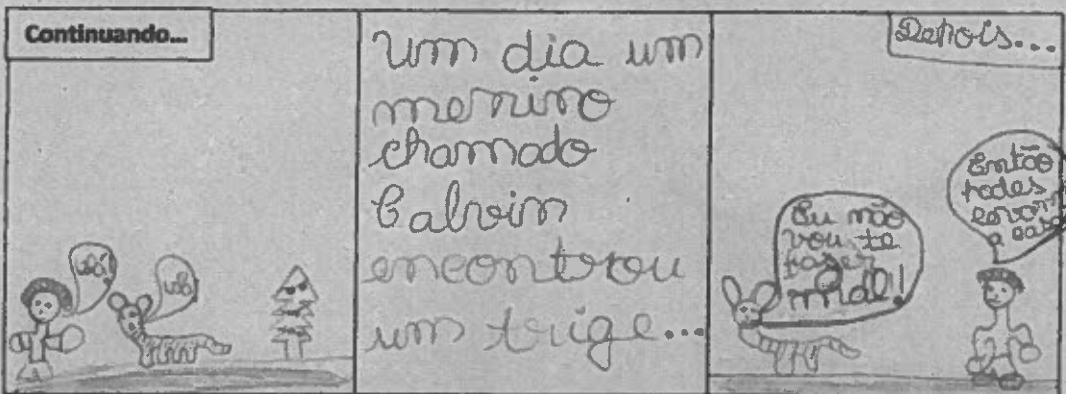 Continuando...
Olá!
Olá!
Um dia um
menino
chamado
Calvin
encontrou
um trige...
Depois...
Eu não
vou te
faser
mal!
Então
podes